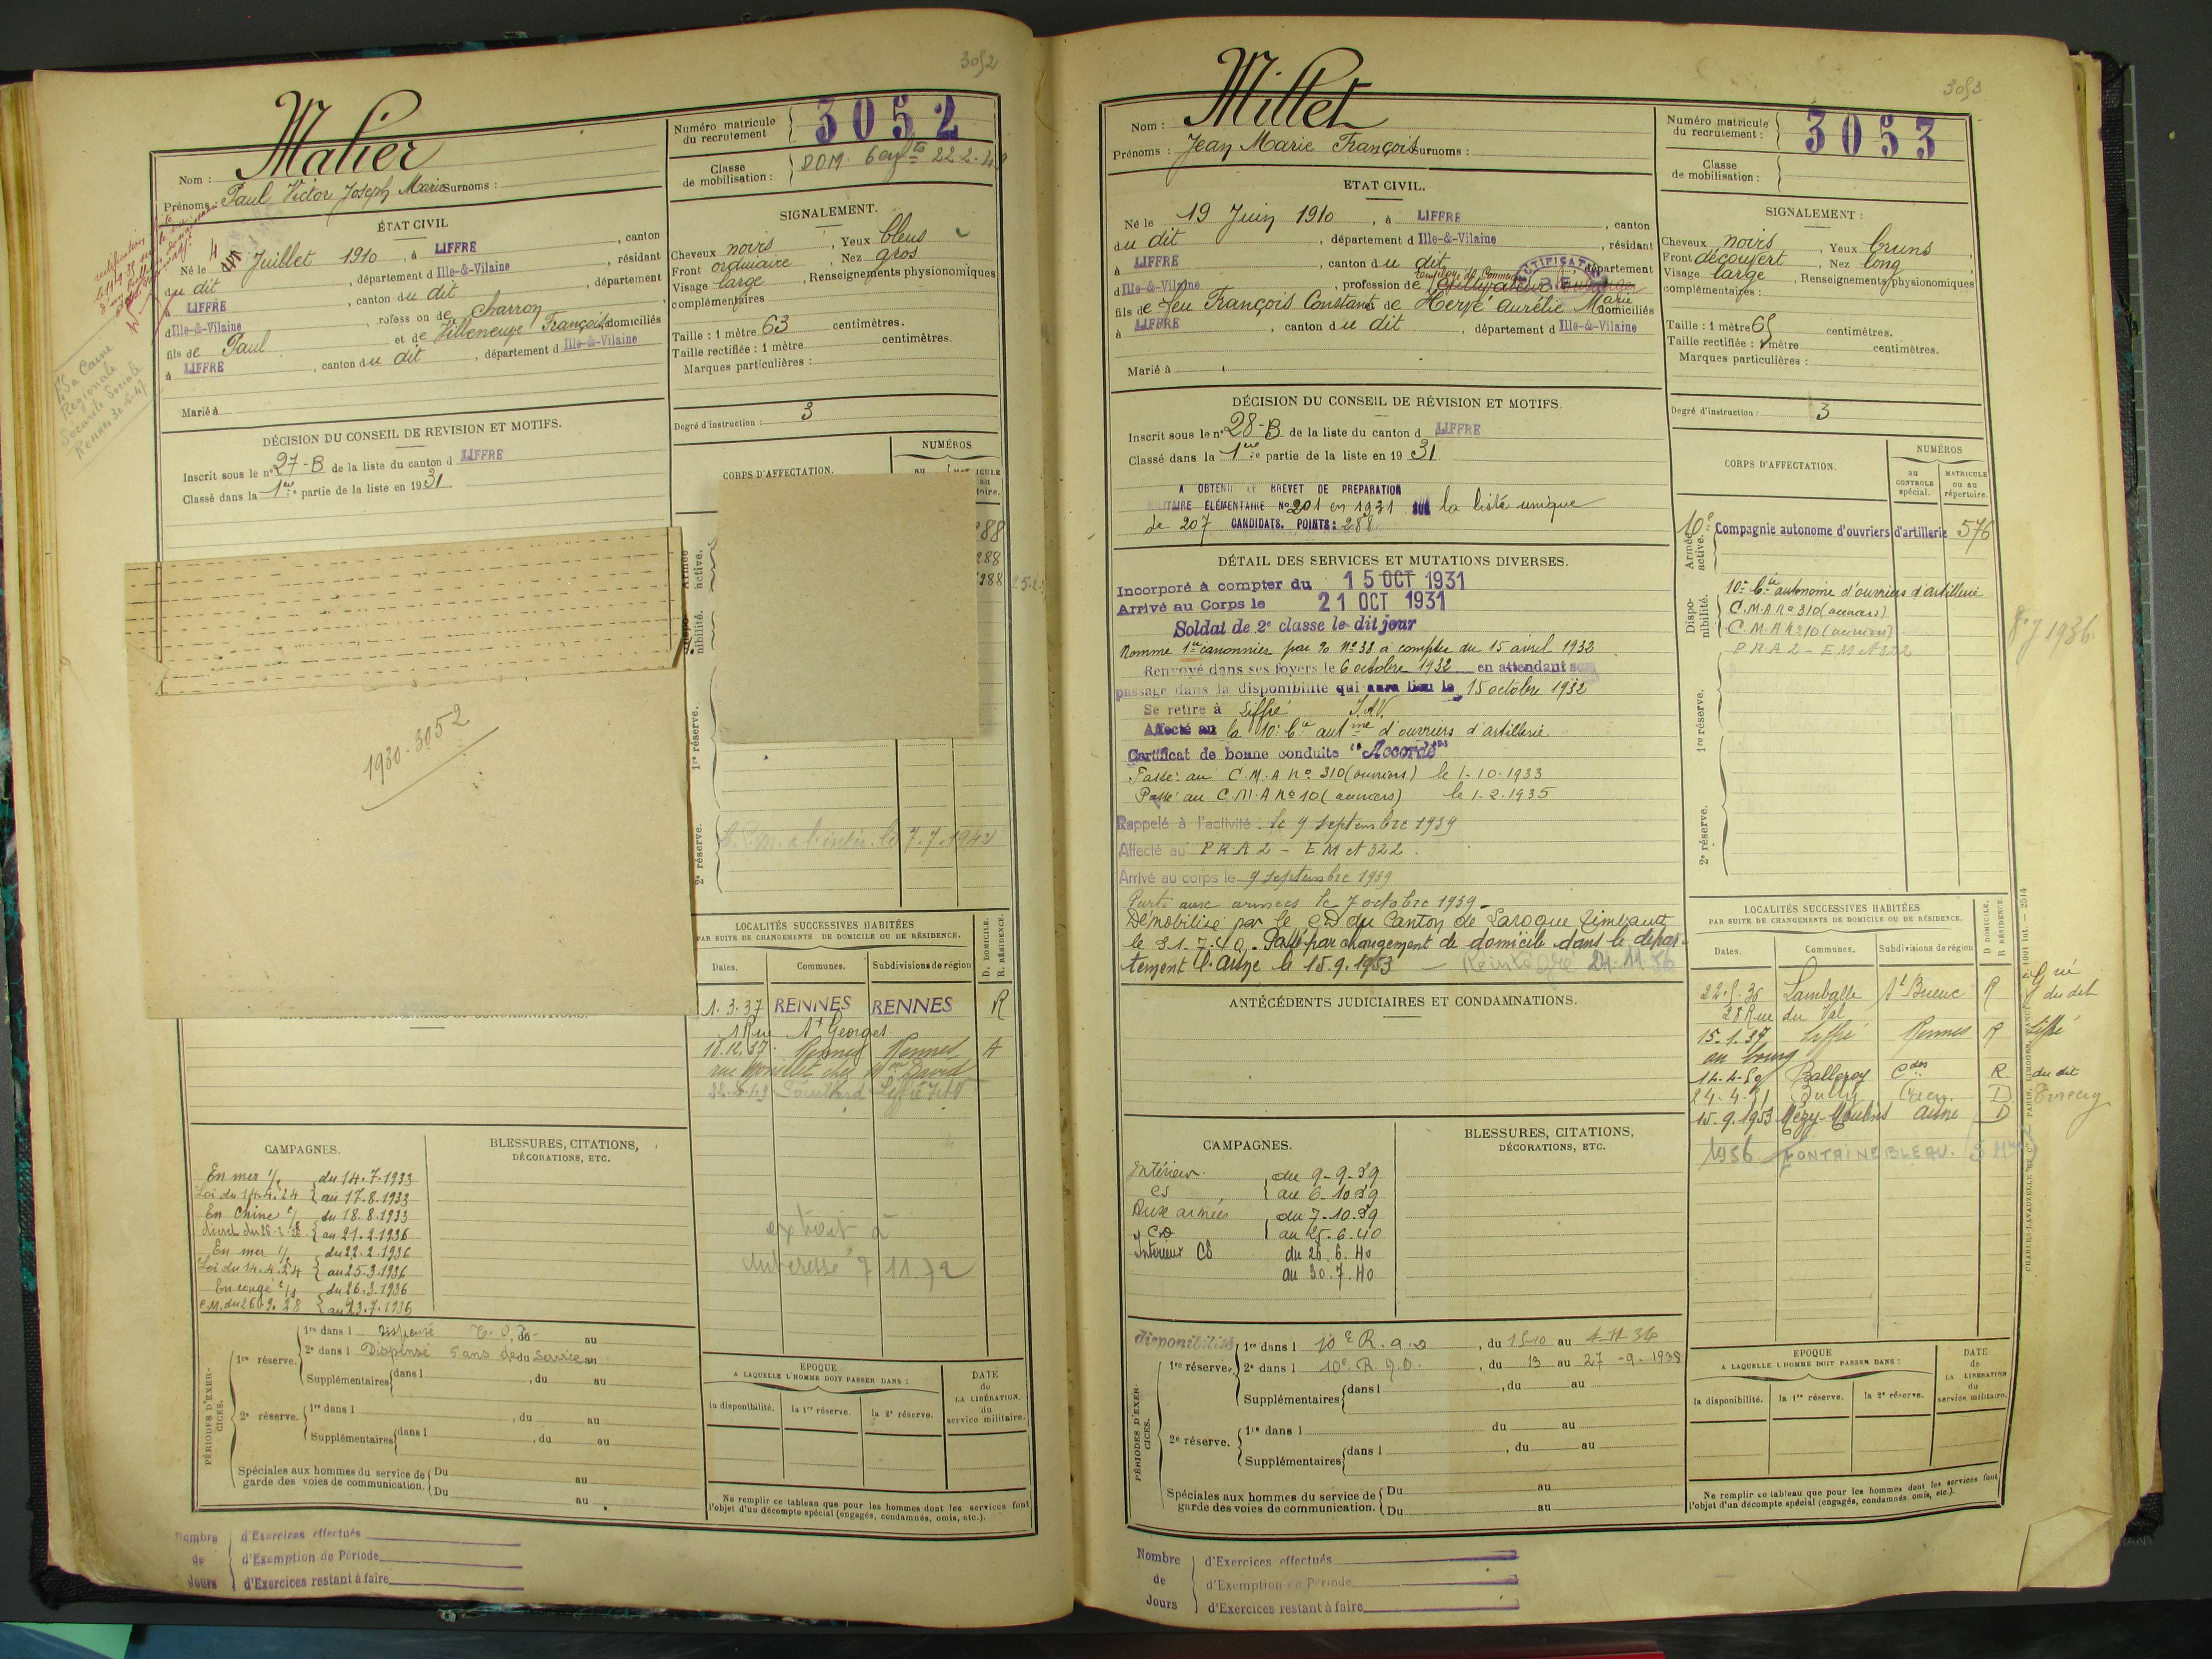 3052
Malier
Nom :
Prénoms : Paul Victor Joseph Marie Surnoms :
Numéro matricule du recrutement 3052
Classe de mobilisation : DOM. 22.2.4
ÉTAT CIVIL
Né le 4 Juillet 1910, à LIFFRE, canton
du dit, département d Ille-&-Vilaine, résidant
à LIFFRE, canton du dit, département
d Ille-&-Vilaine, profess on de charron
fils de Paul et de Villeneuve Françoise domiciliés
à LIFFRE, canton du dit, département d Ille-&-Vilaine
Marié à
Caisse
Regionale
Securité Sociale
Rennes 30-5-47
SIGNALEMENT.
Cheveux noirs, Yeux bleus
Front ordinaire, Nez gros
Visage large, Renseignements physionomiques
complémentaires
Taille : 1 mètre 63 centimètres.
Taille rectifiée : 1 mètre centimètres.
Marques particulières :
Degré d'instruction : 3
DÉCISION DU CONSEIL DE REVISION ET MOTIFS.
Inscrit sous le n° 27-B de la liste du canton d LIFFRE
Classé dans la 1ere partie de la liste en 1931.
CORPS D'AFFECTATION.
NUMÉROS
88
288
288
Armée active.
Dispo- nibilité.
1re réserve.
2e réserve.
7.7.1942
1930-3052
LOCALITÉS SUCCESSIVES HABITÉES
PAR SUITE DE CHANGEMENTS DE DOMICILE OU DE RÉSIDENCE.
D. DOMICILE.
R. RÉSIDENCE.
Dates. Communes. Subdivisions de région
1.3.37 RENNES RENNES R
1 Rue St Georges
Rennes Rennes
chez Mme David
CAMPAGNES.
En mer du 14.7.1933
Loi du 14.4.24 au 17.8.1933
En Chine du 18.8.1933
au 21.2.1936
En mer du 22.2.1936
Loi du 14.4.24 au 25.3.1936
En congé du 26.3.1936
au 23.7.1936
BLESSURES, CITATIONS,
DÉCORATIONS, ETC.
extrait à
interessé 7 11.72
PÉRIODES D'EXER- CICES.
1re réserve.
1re dans l Dispensé au
2e dans l Dispensé 5 ans de du Service au
Supplémentaires dans l, du au
2e réserve.
1re dans l, du au
Supplémentaires dans l, du au
Spéciales aux hommes du service de garde des voies de communication.
Du au
Du au
EPOQUE
A LAQUELLE L'HOMME DOIT PASSER DANS :
la disponibilité. la 1re réserve. la 2e réserve.
DATE de LA LIBÉRATION. du service militaire.
Ne remplir ce tableau que pour les hommes dont les services font
l'objet d'un décompte spécial (engagés, condamnés, omis, etc.).
Nombre de Jours
d'Exercices effectués
d'Exemption de Période
d'Exercices restant à faire
3053
Millet
Nom :
Prénoms : Jean Marie François Surnoms :
Numéro matricule du recrutement : 3053
Classe de mobilisation :
ETAT CIVIL.
Né le 19 Juin 1910, à LIFFRE, canton
du dit, département d Ille-&-Vilaine, résidant
à LIFFRE, canton du dit, département
d Ille-&-Vilaine, profession de Cultivateur
fils de feu François Constant et de Hervé Aurélie Marie domiciliés
à LIFFRE, canton du dit, département d Ille-&-Vilaine
Marié à
SIGNALEMENT :
Cheveux noirs, Yeux bruns
Front découvert, Nez long
Visage large, Renseignements physionomiques
complémentaires :
Taille : 1 mètre 65 centimètres.
Taille rectifiée : 1 mètre centimètres.
Marques particulières :
Degré d'instruction : 3
DÉCISION DU CONSEIL DE RÉVISION ET MOTIFS.
Inscrit sous le n° 28-B de la liste du canton d LIFFRE
Classé dans la 1ere partie de la liste en 1931.
A OBTENU LE BREVET DE PREPARATION
MILITAIRE ELÉMENTAIRE No 201 en 1931 SUR la liste unique
de 207 CANDIDATS. POINTS : 288.
CORPS D'AFFECTATION.
NUMÉROS
au CONTROLE spécial.
MATRICULE ou au répertoire.
Armée active.
10e Compagnie autonome d'ouvriers d'artillerie 576
Dispo- nibilité.
10e Cie autonome d'ouvriers d'artillerie
C.M.A No 310 (ouvriers)
C.M.A No 10 (ouvriers)
PRA2 - EM et 322
1936.
1re réserve.
2e réserve.
DÉTAIL DES SERVICES ET MUTATIONS DIVERSES.
Incorporé à compter du 15 OCT 1931
Arrivé au Corps le 21 OCT 1931
Soldat de 2e classe le dit jour
Nommé 1er canonnier par No 38 à compter du 15 avril 1932
Renvoyé dans ses foyers le 6 octobre 1932 en attendant son
passage dans la disponibilité qui aura lieu le 15 octobre 1932
Se retire à Liffré I.&V.
Affecté au la 10e Cie autme d'ouvriers d'artillerie
Certificat de bonne conduite "Accordé"
Passé au C.M.A No 310 (ouvriers) le 1-10-1933
Passé au C.M.A No 10 (ouvriers) le 1.2.1935
Rappelé à l'activité : le 9 septembre 1939
Affecté au PRA2 - EM et 322.
Arrivé au corps le 9 septembre 1939
Parti aux armées le 7 octobre 1939 -
Démobilisé par le CD du Canton de Laroque Timbault
le 31.7.40. - Passé par changement de domicile dans le dépar-
tement l'Aisne le 15.9.1953 - Réintégré 24-11-56
ANTÉCÉDENTS JUDICIAIRES ET CONDAMNATIONS.
LOCALITÉS SUCCESSIVES HABITÉES
PAR SUITE DE CHANGEMENTS DE DOMICILE OU DE RÉSIDENCE.
D DOMICILE.
R RÉSIDENCE.
Dates. Communes. Subdivisions de région
22.5.36 Lamballe St Brieuc R
28 Rue du Val du dit
15.1.37 Liffré Rennes R Liffré
au bourg
14-4-50 Balleroy R du dit
24.4.51 Bully Caen D Evrecy
15.9.1953 Mézy-Moulins Aisne D
1956 FONTAINEBLEAU.
CAMPAGNES.
Intérieur du 9-9-39
CS au 6-10-39
Aux armées du 7-10-39
CD au 25.6.40
Intérieur CS du 26.6.40
au 30.7.40
BLESSURES, CITATIONS,
DÉCORATIONS, ETC.
PÉRIODES D'EXER- CICES.
disponibilité
1re dans l 10e R.A.D, du 15-10 au 4-11-34
1re réserve. 2e dans l 10e R.A.D., du 13 au 27-9-1938
Supplémentaires dans l, du au
2e réserve.
1re dans l du au
Supplémentaires dans l, du au
Spéciales aux hommes du service de garde des voies de communication.
Du au
Du au
EPOQUE
A LAQUELLE L'HOMME DOIT PASSER DANS :
la disponibilité. la 1re réserve. la 2e réserve.
DATE de LA LIBÉRATION du service militaire.
Ne remplir ce tableau que pour les hommes dont les services font
l'objet d'un décompte spécial (engagés, condamnés omis, etc.).
Nombre de Jours
d'Exercices effectués
d'Exemption de Période
d'Exercices restant à faire